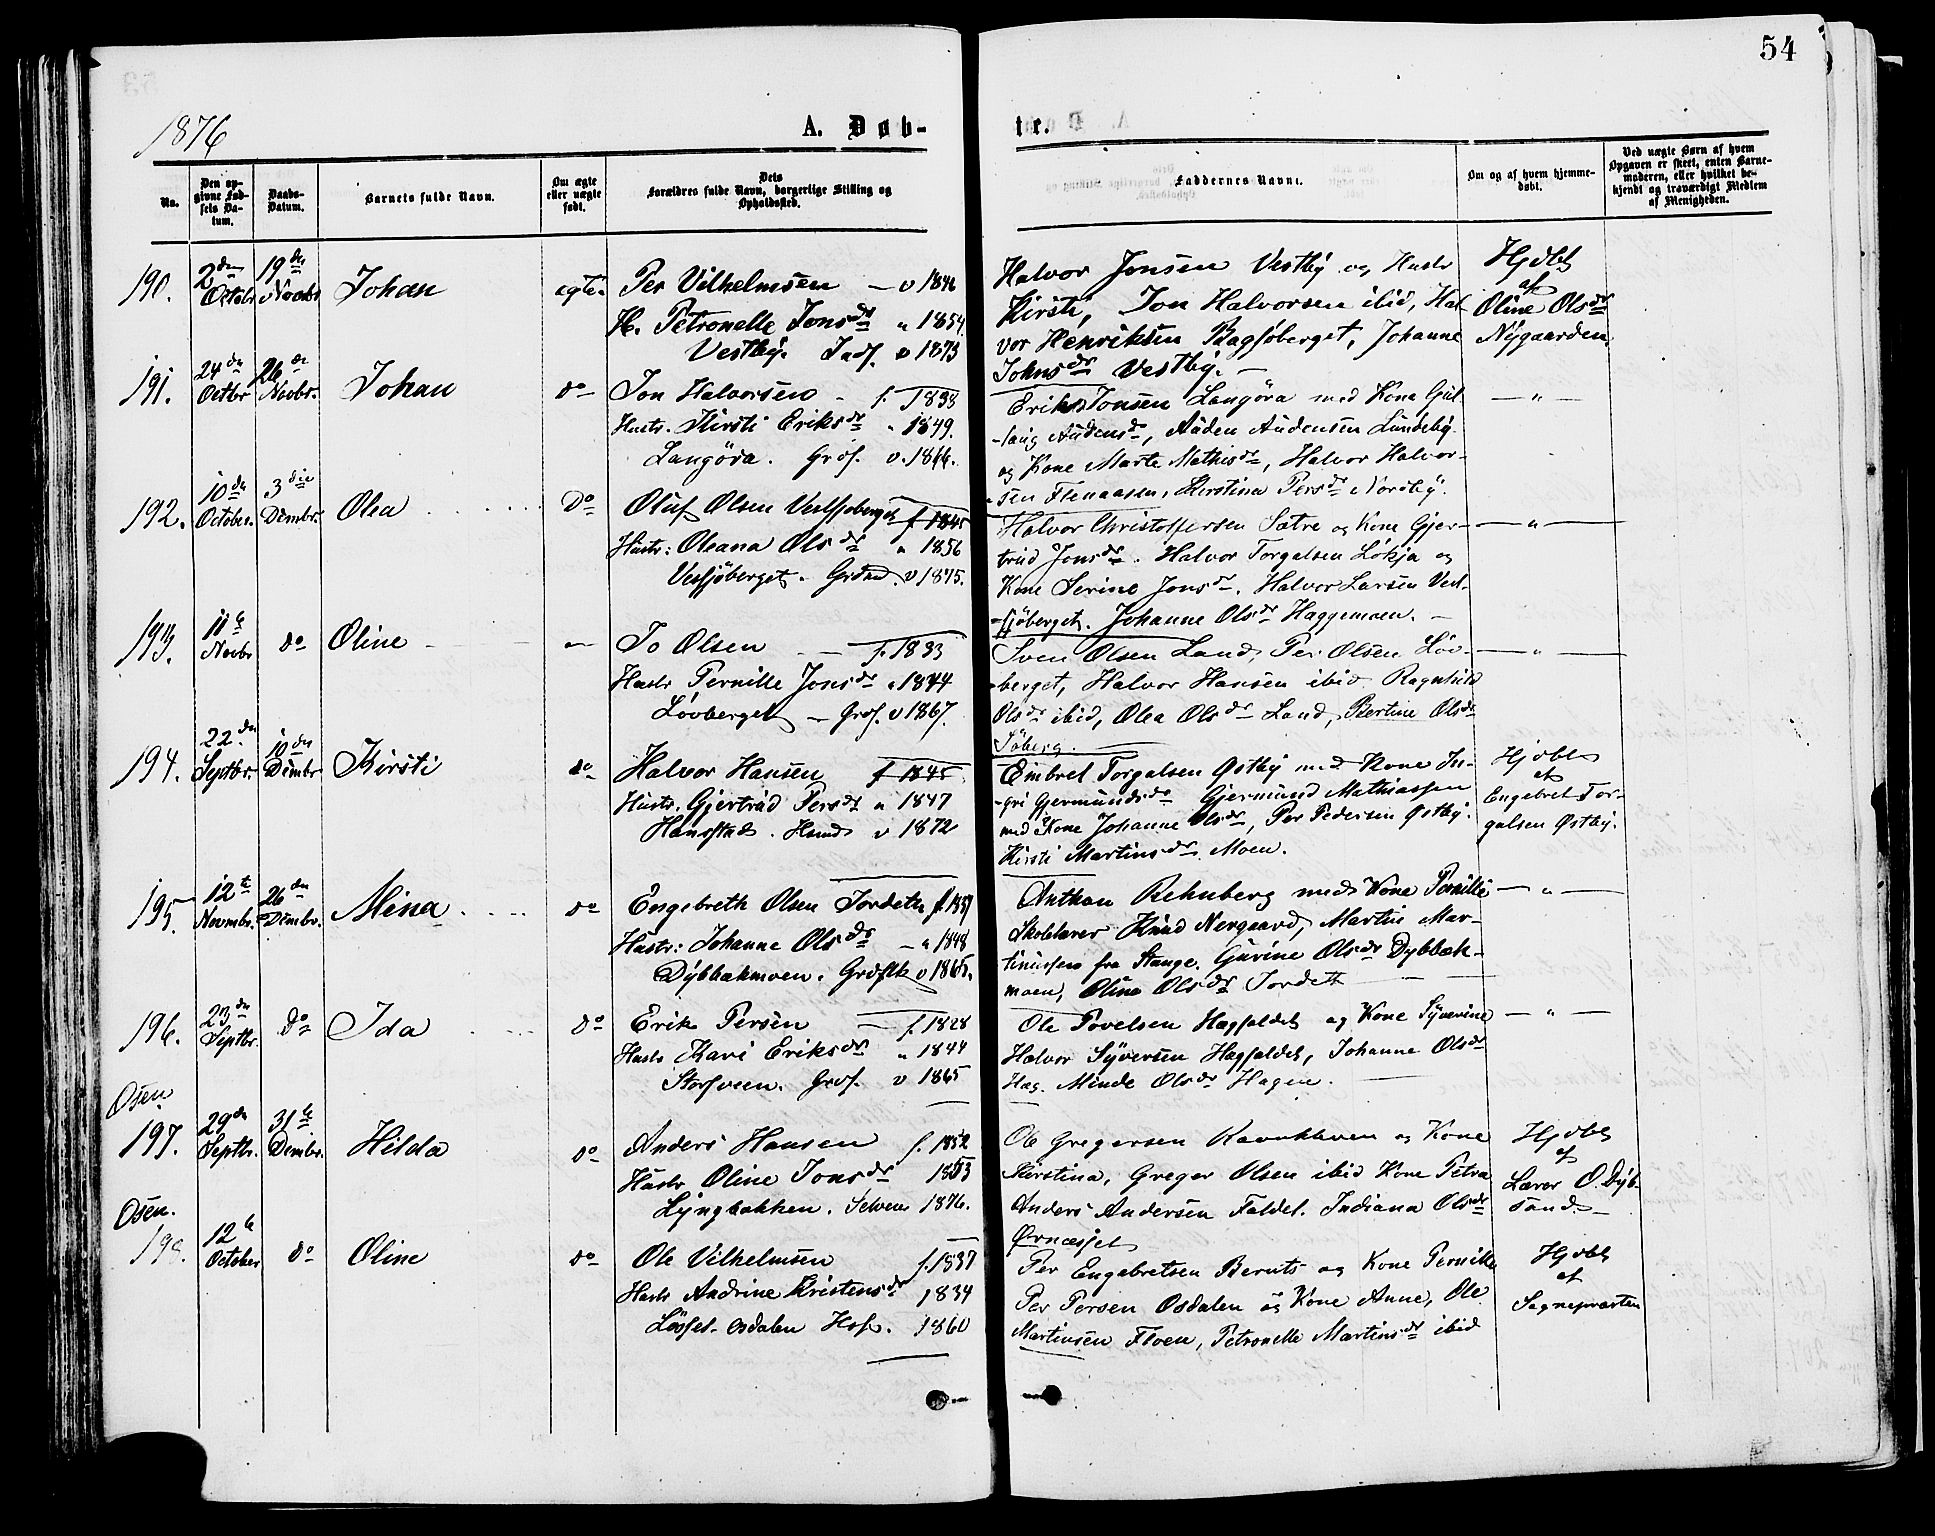 54
1876
A. Døb-
te.
No.
Den op-
givne Fød-
sels Da-
tum.
Daabs-
Datum.
Barnets fulde Navn.
Om ægte
eller uægte
født.
Dets
Forældres fulde Navn, borgerlige Stilling og
Opholdssted.
Faddernes Navne.
Om og af hvem hjemme-
døbt.
Ved uægte Børn af hvem
Opgaven er skeet, enten Barne-
moderen, eller hvilket be-
kjendt og troværdigt Medlem
af Menigheden.
190.
2den
Octobr
19de
Novbr
Johan
egte.
Per Vilhelmsen — v 1846
H. Petronelle Jonsdr " 1854.
Vestby. Inds. v 1873
Halvor Jonsen Vestby og Hustr
Kirsti, Jon Halvorsen ibid, Hal-
vor Henriksen Bagsjøberget, Johanne
Johnsdr Vestby. —
Hjdbt
af
Oline Olsdr
Nygaarden.
191.
24de
Octbr
26de
Novbr.
Johan
do
Jon Halvorsen - f. 1838
Hustr. Kirsti Eriksdr " 1849.
Langøra. Grdf. v. 1866.
Erik Jonsen Langøra med Kone Gul-
-laug Audensdr, Auden Audensen Lundeby
og Kone Marte Mathisdr, Halvor Halvor-
sen Flenaasen, Kirstina Persdr Nordby.
— " —
192.
10de
October.
3die
Dembr.
Olea
Do
Oluf Olsen Vestsjøberget f. 1845
Hustr: Oleana Olsdr " 1856
Vessjøberget. Grdmd. v 1875.
Halvor Christoffersen Sætre og Kone Gjer-
trud Jonsdr. Halvor Torgalsen Løkja og
Kone Serine Jonsdr. Halvor Larsen Vest-
-sjøberget. Johanne Olsdr Haggemoen. —
— " —
193.
11te
Novbr
do
Oline
—
Jo Olsen — f. 1833
Hustr Pernille Jonsdr " 1844
Løvberget — Grdf. v 1867.
Sven Olsen Land, Per Olsen Løv-
-berget, Halvor Hansen ibid Ragnhild
Olsdr ibid, Olea Olsdr Land, Bertine Olsdr
Søberg.
— " —
194.
22den
Septbr.
10de
Dembr
Kirsti
do
Halvor Hansen f 1845
Hustr. Gjertrud Persdr " 1847
Hansstad. Hsmd v 1872
Embret Torgalsen Østby med Kone In-
-gri Gjermundsdr Gjermund Mathiassen
med Kone Johanne Olsdr, Per Pedersen Østby.
Kirsti Martinsdr. Moen.
Hjdbt
af
Engebret Tor-
galsen Østby.
195.
12te
Novmbr.
26de
Dembr.
Mina
do
Engebreth Olsen Jordet f.
Hustr: Johanne Olsdr — " 1848
Dybbækmoen. Grdflk v 1865.
Anthon Rehnberg med Kone Pernille
Skolelærer Knud Nergaard, Martin Mar-
tinussen fra Stange. Gurine Olsdr Dybbæk-
moen, Olina Olsdr Jordett
— " —
196.
23de
Septbr.
Do
Ida
do
Erik Persen — f. 1828
Hustr Kari Eriksdr " 1844
Storsveen. Grdf. v 1865
Ole Povelsen Hagfaldet og Kone Syverine
Halvor Syversen Hagfaldet, Johanne Olsdr
Hag. Minde Olsdr Hagen.
— " —
Osen
197.
29de
Septbr.
31te
Dembr.
Hilda
do
Anders Hansen f. 1852
Hustr Oline Jonsdr 1853
Lyngbakken. Selveier 1876.
Ole Gregersen Ravnkleven og Kone
Kirstina, Greger Olsen ibid Kone Petra
Anders Andersen Faldet. Indiana Olsdr
Ørnæsset
Hjdbt
af
Lærer O. Dyb-
sand.
Osen.
198.
12te
October
do
Oline
do
Ole Vilhelmsen f. 1837
Hustr Andrine Kristensdr 1834
Løsset. Osdalen Hsf. 1860
Per Engebretsen Beruts og Kone Pernille
Per Persen Osdalen og Kone Anne, Ole
Martinsen Floen, Petronelle Martinsdr ibid
Hjdbt
af
Sognepræsten